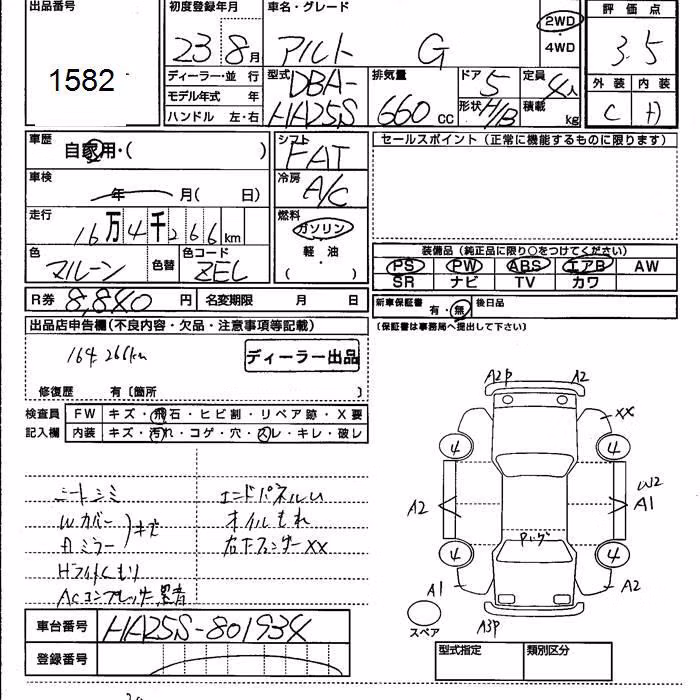 出品番号 初度登録年月 車名・グレード 評価点
1582 23年8月 アルト G 2WD ・4WD 3.5
ディーラー・並行 型式 DBA-HA25S 排気量 660cc ドア 5 定員 4 外装 内装
モデル年式 年 形状 H/B 積載 kg C
ハンドル 左・右
車歴 自家用・( ) シフト FAT セールスポイント (正常に機能するものに限ります)
車検 年 月( 日) 冷房 A/C
走行 16万4千266km 燃料 ガソリン 軽油 ( ・ )
色 マルーン 色替 色コード ZEL 装備品 (純正品に限り○をつけてください)
PS PW ABS エアB AW
SR ナビ TV カワ
R券 8,840円 名変期限 月 日 新車保証書 有・無 後日品
(保証書は事務局へ提出して下さい)
出品店申告欄(不良内容・欠品・注意事項等記載)
164,266km ディーラー出品
修復歴 有〔箇所 〕
検査員 FW キズ・飛石・ヒビ割・リペア跡・X要
記入欄 内装 キズ・汚れ・コゲ・穴・スレ・キレ・破レ
シートシミ エンドパネルU
Wカバー オイルもれ
Rミラー )キズ 右Fフェンダー XX
Hライトくもり
ACコンプレッサー異音
A2P A2
XX
4 4
A2 W2 A1
Pドア
4 4
A1 A2
A3P
スペア
車台番号 HA25S-801934
登録番号
型式指定 類別区分